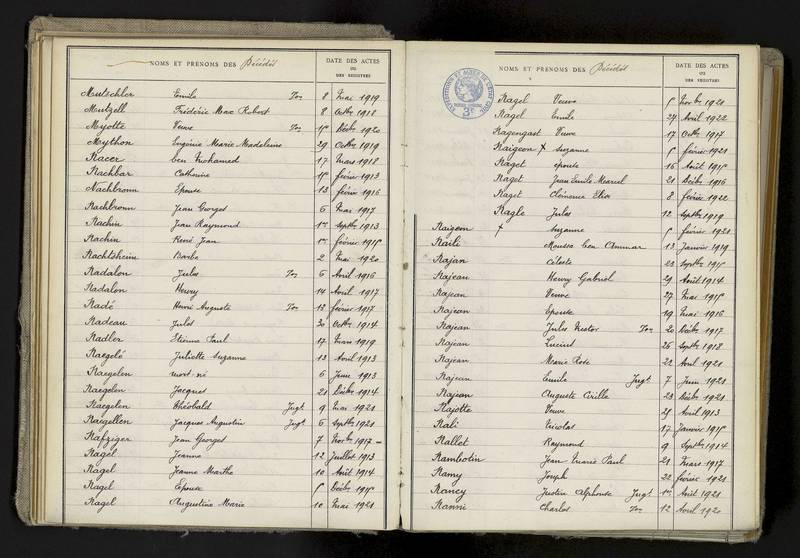 NOMS ET PRÉNOMS DES Décédés DATE DES ACTES OU DES REGISTRES
Mutschler Emile Jon 8 Mai 1919
Mutzell Frédéric Max Robert 8 Octbre 1918
Myotte Veuve Décbre 1920
Mython Eugénie Marie Madeleine 29 Octbre 1919
Racer ben Mohamed 17 Mars 1918
Rachbar Catherine février 1913
Nachbronn Epouse 13 février 1916
Rachbronn Jean Georges 6 Mai 1917
Rachin Jean Raymond 1er Septbre 1913
Rachin René Jean 1er février
Rachtsheim Barbe 2 Mai 1920
Radalon Jules Jon 6 Avril 1916
Radalon Henry 14 Avril 1917
Radé Henri Auguste Jon 12 février 1917
Radeau Jules 30 Octbre 1914
Radler Etienne Paul 17 Mars 1919
Raegelé Juliette Suzanne 13 Avril 1913
Raegelen mort né 6 Juin 1913
Raegelen Jacques 21 Décbre 1914
Raegelen Théobald Jugt 9 Mai 1921
Raegellen Jacques Augustin Jugt 6 Septbre 1921
Rafziger Jean Georges 7 Novbre 1917
Ragel Jeanne 12 Juillet 1913
Ragel Jeanne Marthe 10 Août 1914
Ragel Epouse Décbre
Ragel Augustine Marie 10 Mai 1921
NOMS ET PRÉNOMS DES Décédés DATE DES ACTES OU DES REGISTRES
Ragel Veuve Novbre 1921
Ragel Emile 24 Avril 1922
Ragengast Veuve 17 Octbre 1917
Raigeon + Suzanne février 1921
Raget épouse 16 Août
Raget Jean Emile Marcel 21 Décbre 1916
Raget Clémence Elise 8 février 1922
Ragle Jules 12 Septbre 1919
Raigeon + Suzanne février 1921
Raili Moussa ben Ammar 13 Janvier 1919
Rajan Céleste 23 Septbre
Rajean Henry Gabriel 29 Août 1914
Rajean Veuve 27 Mai
Rajean Epouse 19 Mai 1916
Rajean Jules Nestor Jon 20 Décbre 1917
Rajean Lucien 26 Septbre 1918
Rajean Marie Rose 22 Avril 1921
Rajean Emile Jugt 7 Juin 1921
Rajean Auguste Cirille 23 Décbre 1921
Rajotte Veuve Avril 1913
Rali Nicolas 17 Janvier
Rallet Raymond 9 Septbre 1914
Rambotin Jean Marie Paul 21 Mars 1917
Ramy Joseph 22 février 1921
Rancy Justin Alphonse Jugt 1er Août 1921
Ranni Charles Jon 12 Avril 1920